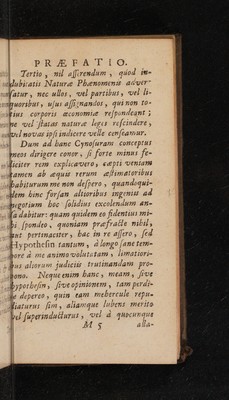 PRÆFATIO.
Tertio, nil asserendum, quod in-
dubicatis Naturæ Phænomenis adver-
satur, nec ullos, vel partibus, vel li-
quoribus, usus assignandos, qui non to-
tius corporis œconomiæ respondeant;
ne vel statas naturæ leges rescindere,
vel novas ipsi indicere velle censeamur.
Dum ad hanc Cynosuram conceptus
meos dirigere conor, si forte minus fe-
liciter rem explicavero, cæpti veniam
tamen ab æquis rerum æstimatoribus
habiturum me non despero, quandoqui-
dem hinc forsan altioribus ingeniis ad
negotium hoc solidius excolendum an-
sa dabitur: quam quidem eo fidentius mi-
hi spondeo, quoniam præfractè nihil,
aut pertinaciter, hac in re assero, sed
Hypothesin tantum, à longo sane tem-
pore à me animo volutatam, limatiori-
bus aliorum judiciis trutinandam pro-
pono. Neque enim hanc, meam, sive
hypothesin, sive opinionem, tam perdi-
te depereo, quin eam mehercule repu-
diaturus sim, aliamque lubens merito
vel superinducturus, vel à quocunque
M 5 alla-